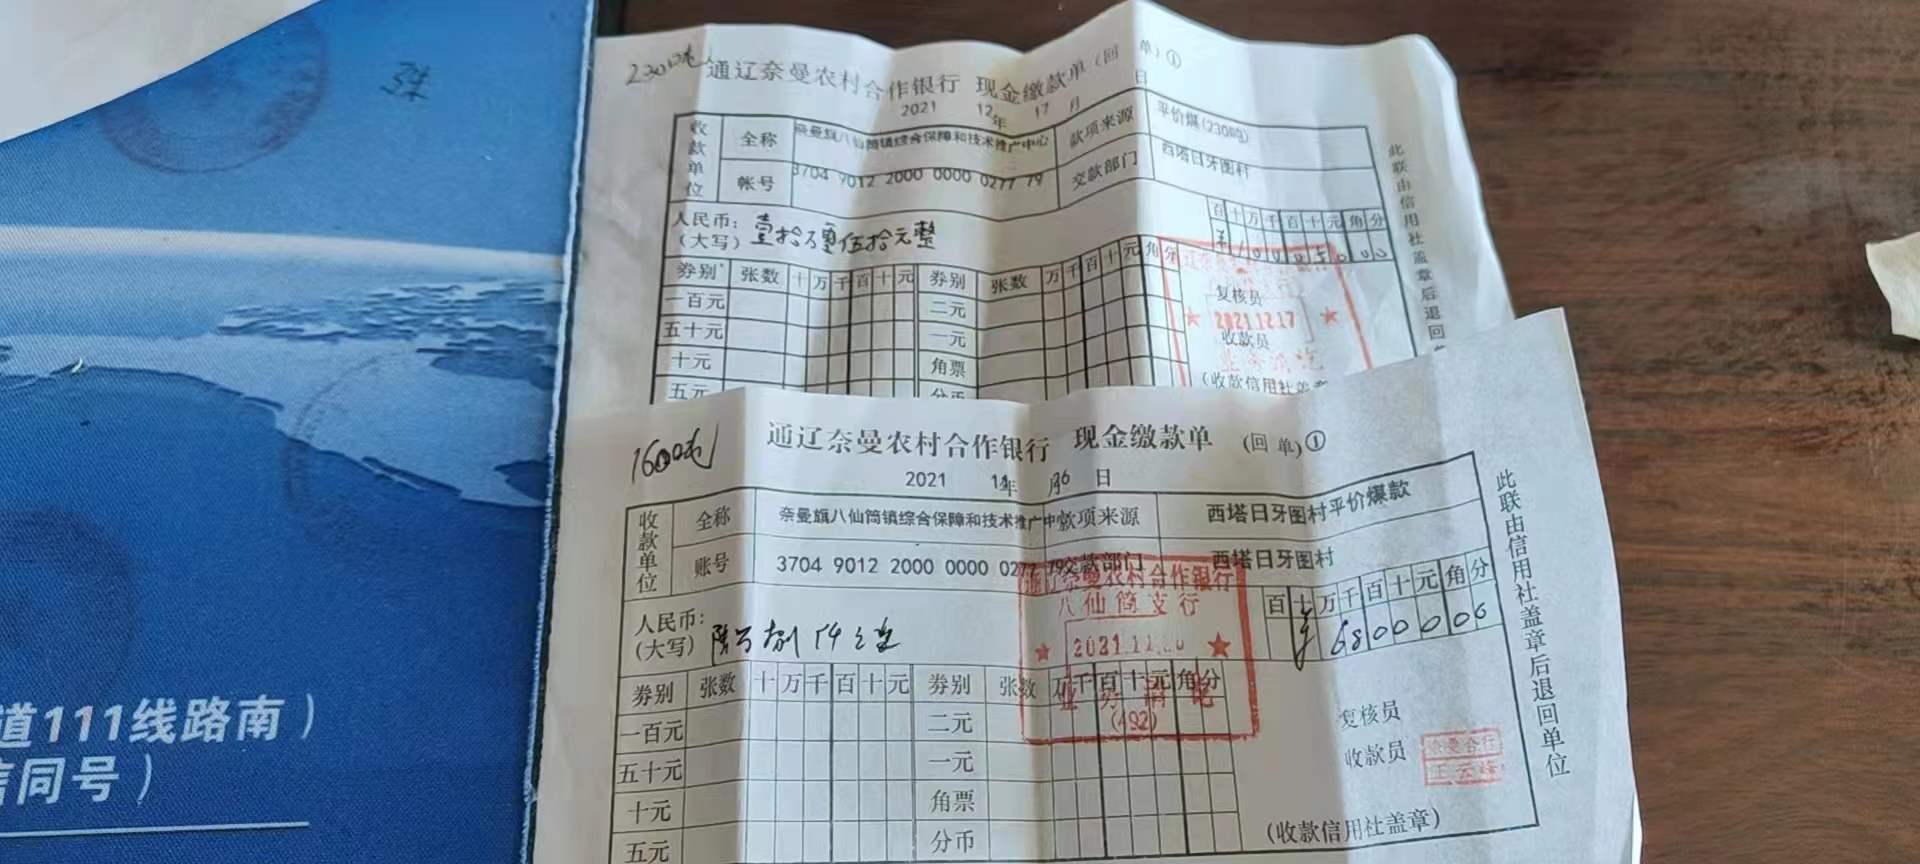 张
道111线路南）
信同号）
230吨
通辽奈曼农村合作银行 现金缴款单（回 单）①
2021 12年 17 月 日
收款单位 全称 奈曼旗八仙筒镇综合保障和技术推广中心 款项来源 平价煤(230吨)
帐号 3704 9012 2000 0000 0277 79 交款部门 西塔日牙图村
人民币：
（大写） 壹拾万零伍拾元整
百十万千百十元角分
券别 张数 十万千百十元 券别 张数 万千百十元角分
一百元 二元
五十元 一元
十元 角票
五元 分币
2021.12.17
复核员
收款员
（收款信用社盖章
此联由信用社盖章后退回单
1600吨
通辽奈曼农村合作银行 现金缴款单 （回 单）①
2021 年 月 日
收款单位 全称 奈曼旗八仙筒镇综合保障和技术推广中心 款项来源 西塔日牙图村平价爆款
账号 3704 9012 2000 0000 0277 79 交款部门 西塔日牙图村
人民币：
（大写） 陆万捌仟元
百十万千百十元角分
6800000
券别 张数 十万千百十元 券别 张数 万千百十元角分
一百元 二元
五十元 一元
十元 角票
五元 分币
通辽奈曼农村合作银行
八仙筒支行
业务清讫
(492)
复核员
收款员
奈曼合行
（收款信用社盖章）
此联由信用社盖章后退回单位